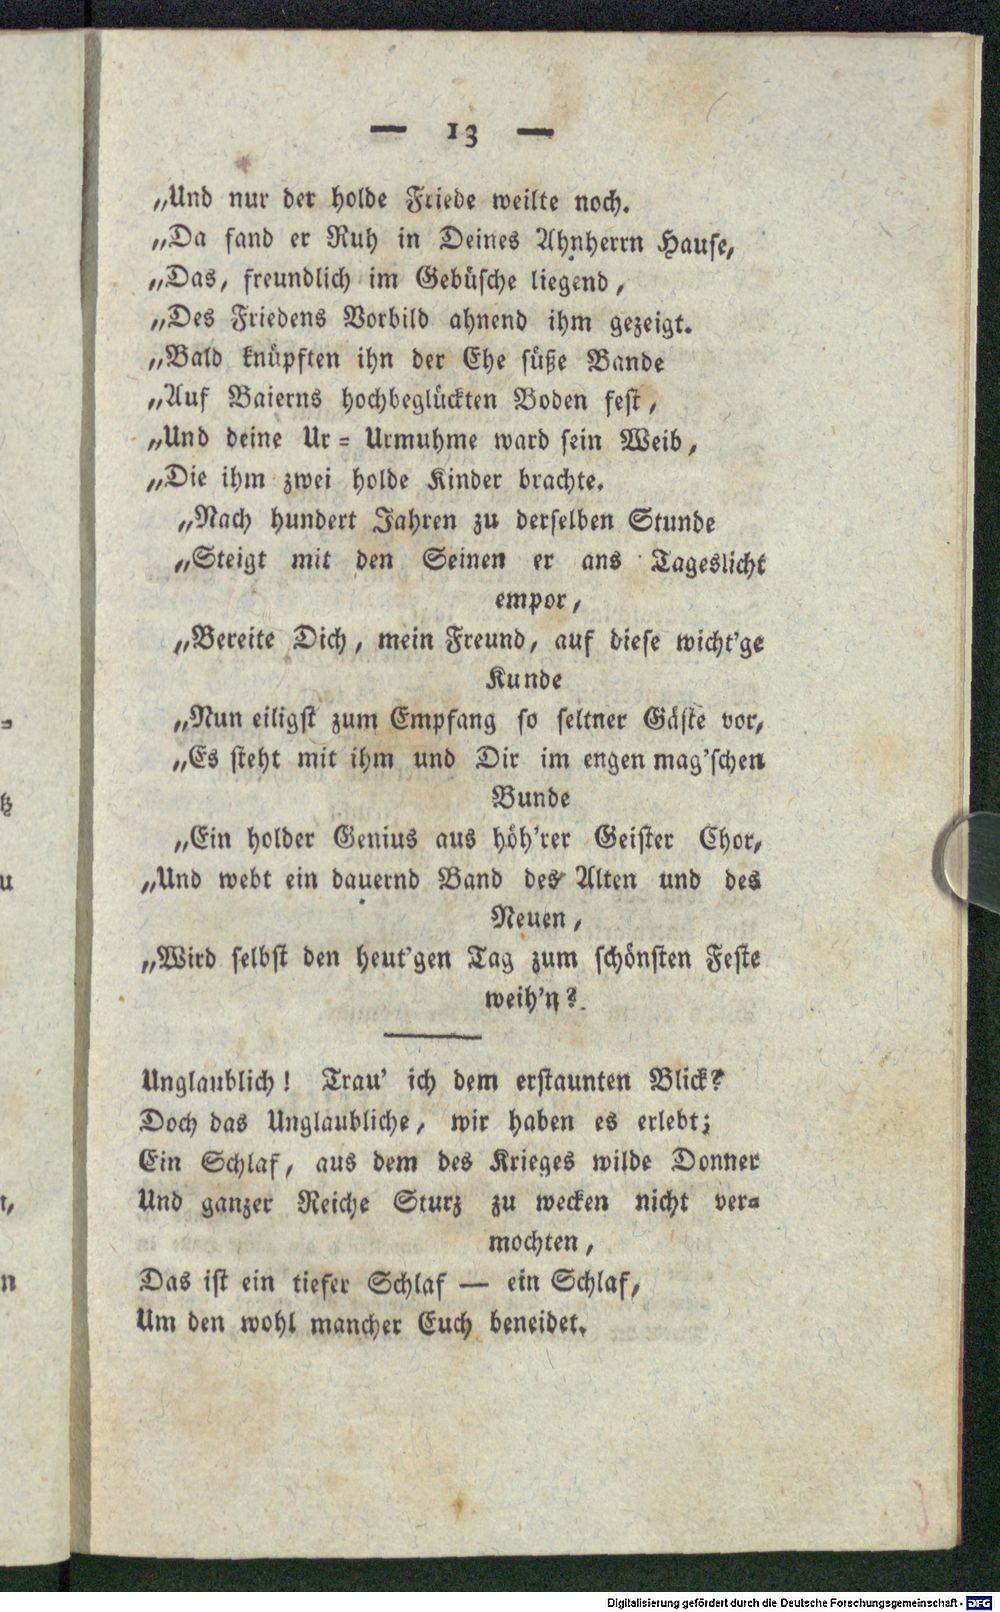 — 13 —
„Und nur der holde Friede weilte noch.
„Da fand er Ruh in Deines Ahnherrn Hause,
„Das, freundlich im Gebüsche liegend,
„Des Friedens Vorbild ahnend ihm gezeigt.
„Bald knüpften ihn der Ehe süße Bande
„Auf Baierns hochbeglückten Boden fest,
„Und deine Ur= Urmuhme ward sein Weib,
„Die ihm zwei holde Kinder brachte.
„Nach hundert Jahren zu derselben Stunde
„Steigt mit den Seinen er ans Tageslicht
empor,
„Bereite Dich, mein Freund, auf diese wicht'ge
Kunde
„Nun eiligst zum Empfang so seltner Gäste vor,
„Es steht mit ihm und Dir im engen mag'schen
Bunde
„Ein holder Genius aus höh'rer Geister Chor,
„Und webt ein dauernd Band des Alten und des
Neuen,
„Wird selbst den heut'gen Tag zum schönsten Feste
weih'n?
Unglaublich! Trau' ich dem erstaunten Blick?
Doch das Unglaubliche, wir haben es erlebt;
Ein Schlaf, aus dem des Krieges wilde Donner
Und ganzer Reiche Sturz zu wecken nicht ver=
mochten,
Das ist ein tiefer Schlaf — ein Schlaf,
Um den wohl mancher Euch beneidet.
Digitalisierung gefördert durch die Deutsche Forschungsgemeinschaft - DFG